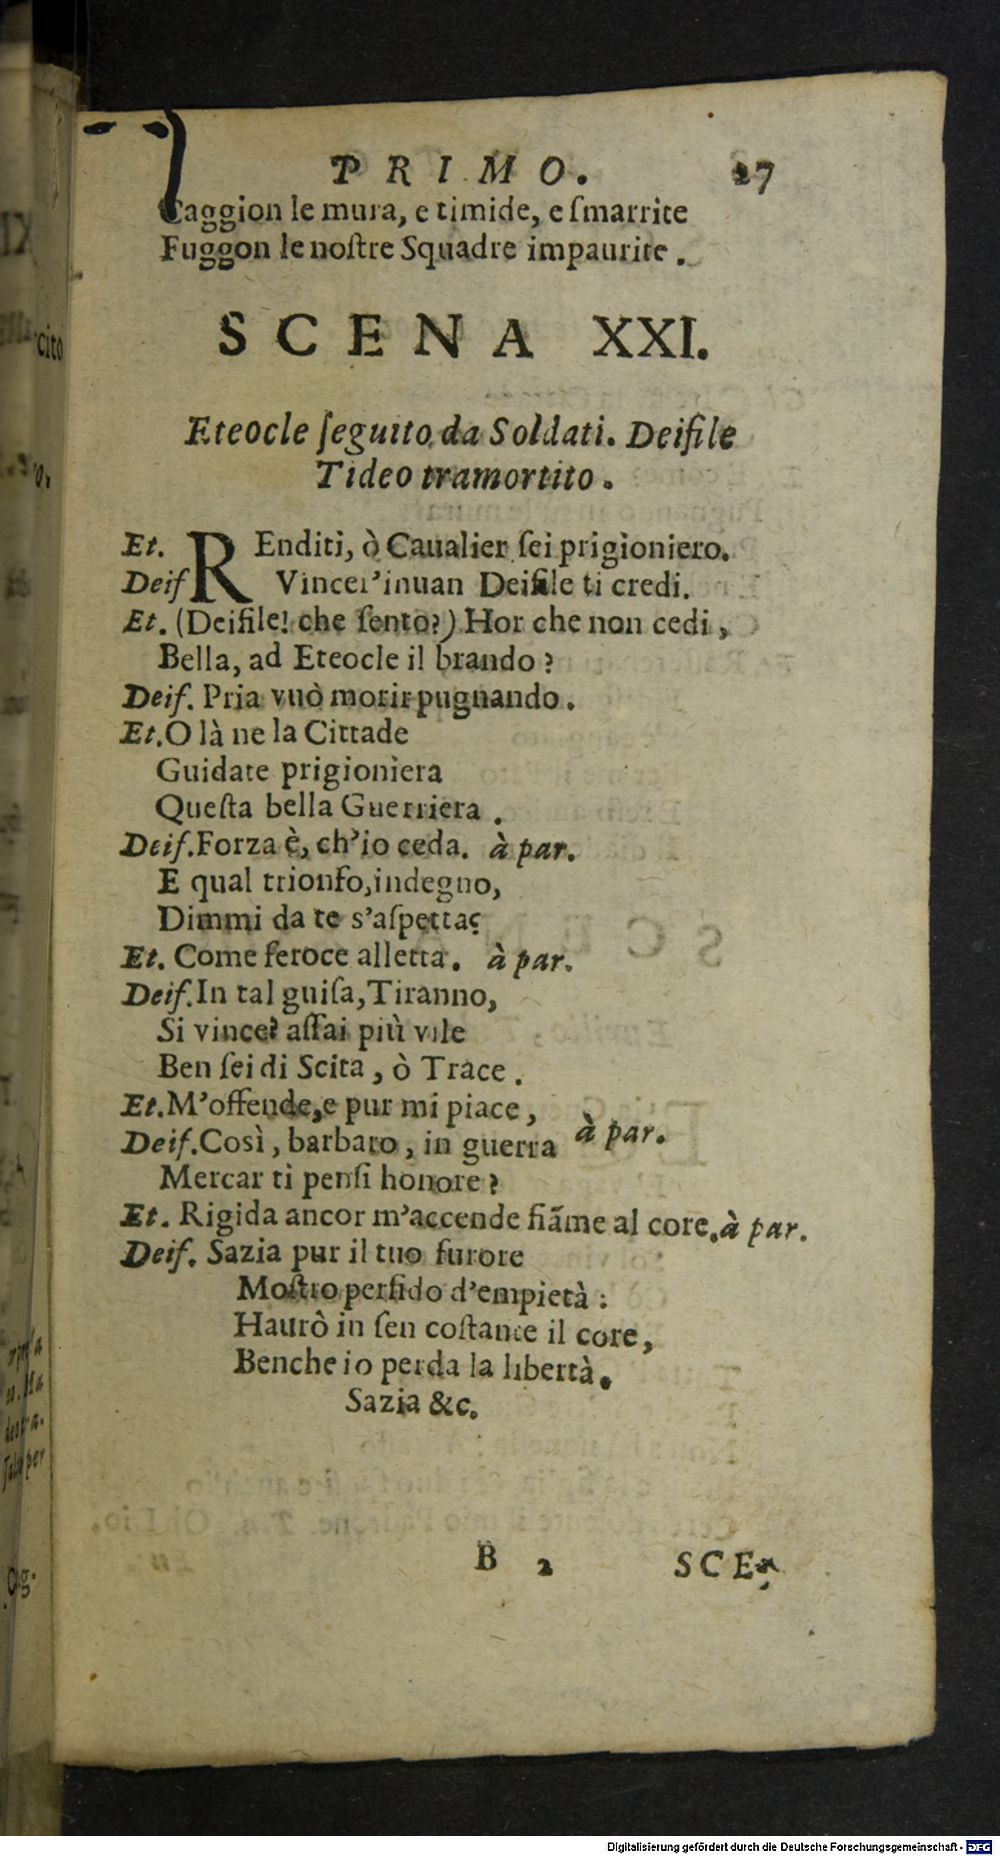 PRIMO. 27
Caggion le mura, e timide, e ſmarrite
Fuggon le noſtre Squadre impaurite.
SCENA XXI.
Eteocle ſeguito da Soldati. Deifile
Tideo tramortito.
Et. REnditi, ò Caualier ſei prigioniero.
Deif Vincer'inuan Deifile ti credi.
Et. (Deifile! che ſento?) Hor che non cedi,
Bella, ad Eteocle il brando?
Deif. Pria vuò morir pugnando.
Et. O là ne la Cittade
Guidate prigioniera
Queſta bella Guerriera.
Deif. Forza è, ch'io ceda. à par.
E qual trionfo, indegno,
Dimmi da te s'aſpetta?
Et. Come feroce alletta. à par.
Deif. In tal guiſa, Tiranno,
Si vince? aſſai più vile
Ben ſei di Scita, ò Trace.
Et. M'offende, e pur mi piace,
à par.
Deif. Così, barbaro, in guerra
Mercar ti penſi honore?
Et. Rigida ancor m'accende fiãme al core. à par.
Deif. Sazia pur il tuo furore
Moſtro perfido d'empietà:
Haurò in ſen coſtante il core,
Benche io perda la libertà.
Sazia &c.
B 2 SCE-
cito
o,
per
Og-
Digitalisierung gefördert durch die Deutsche Forschungsgemeinschaft - DFG